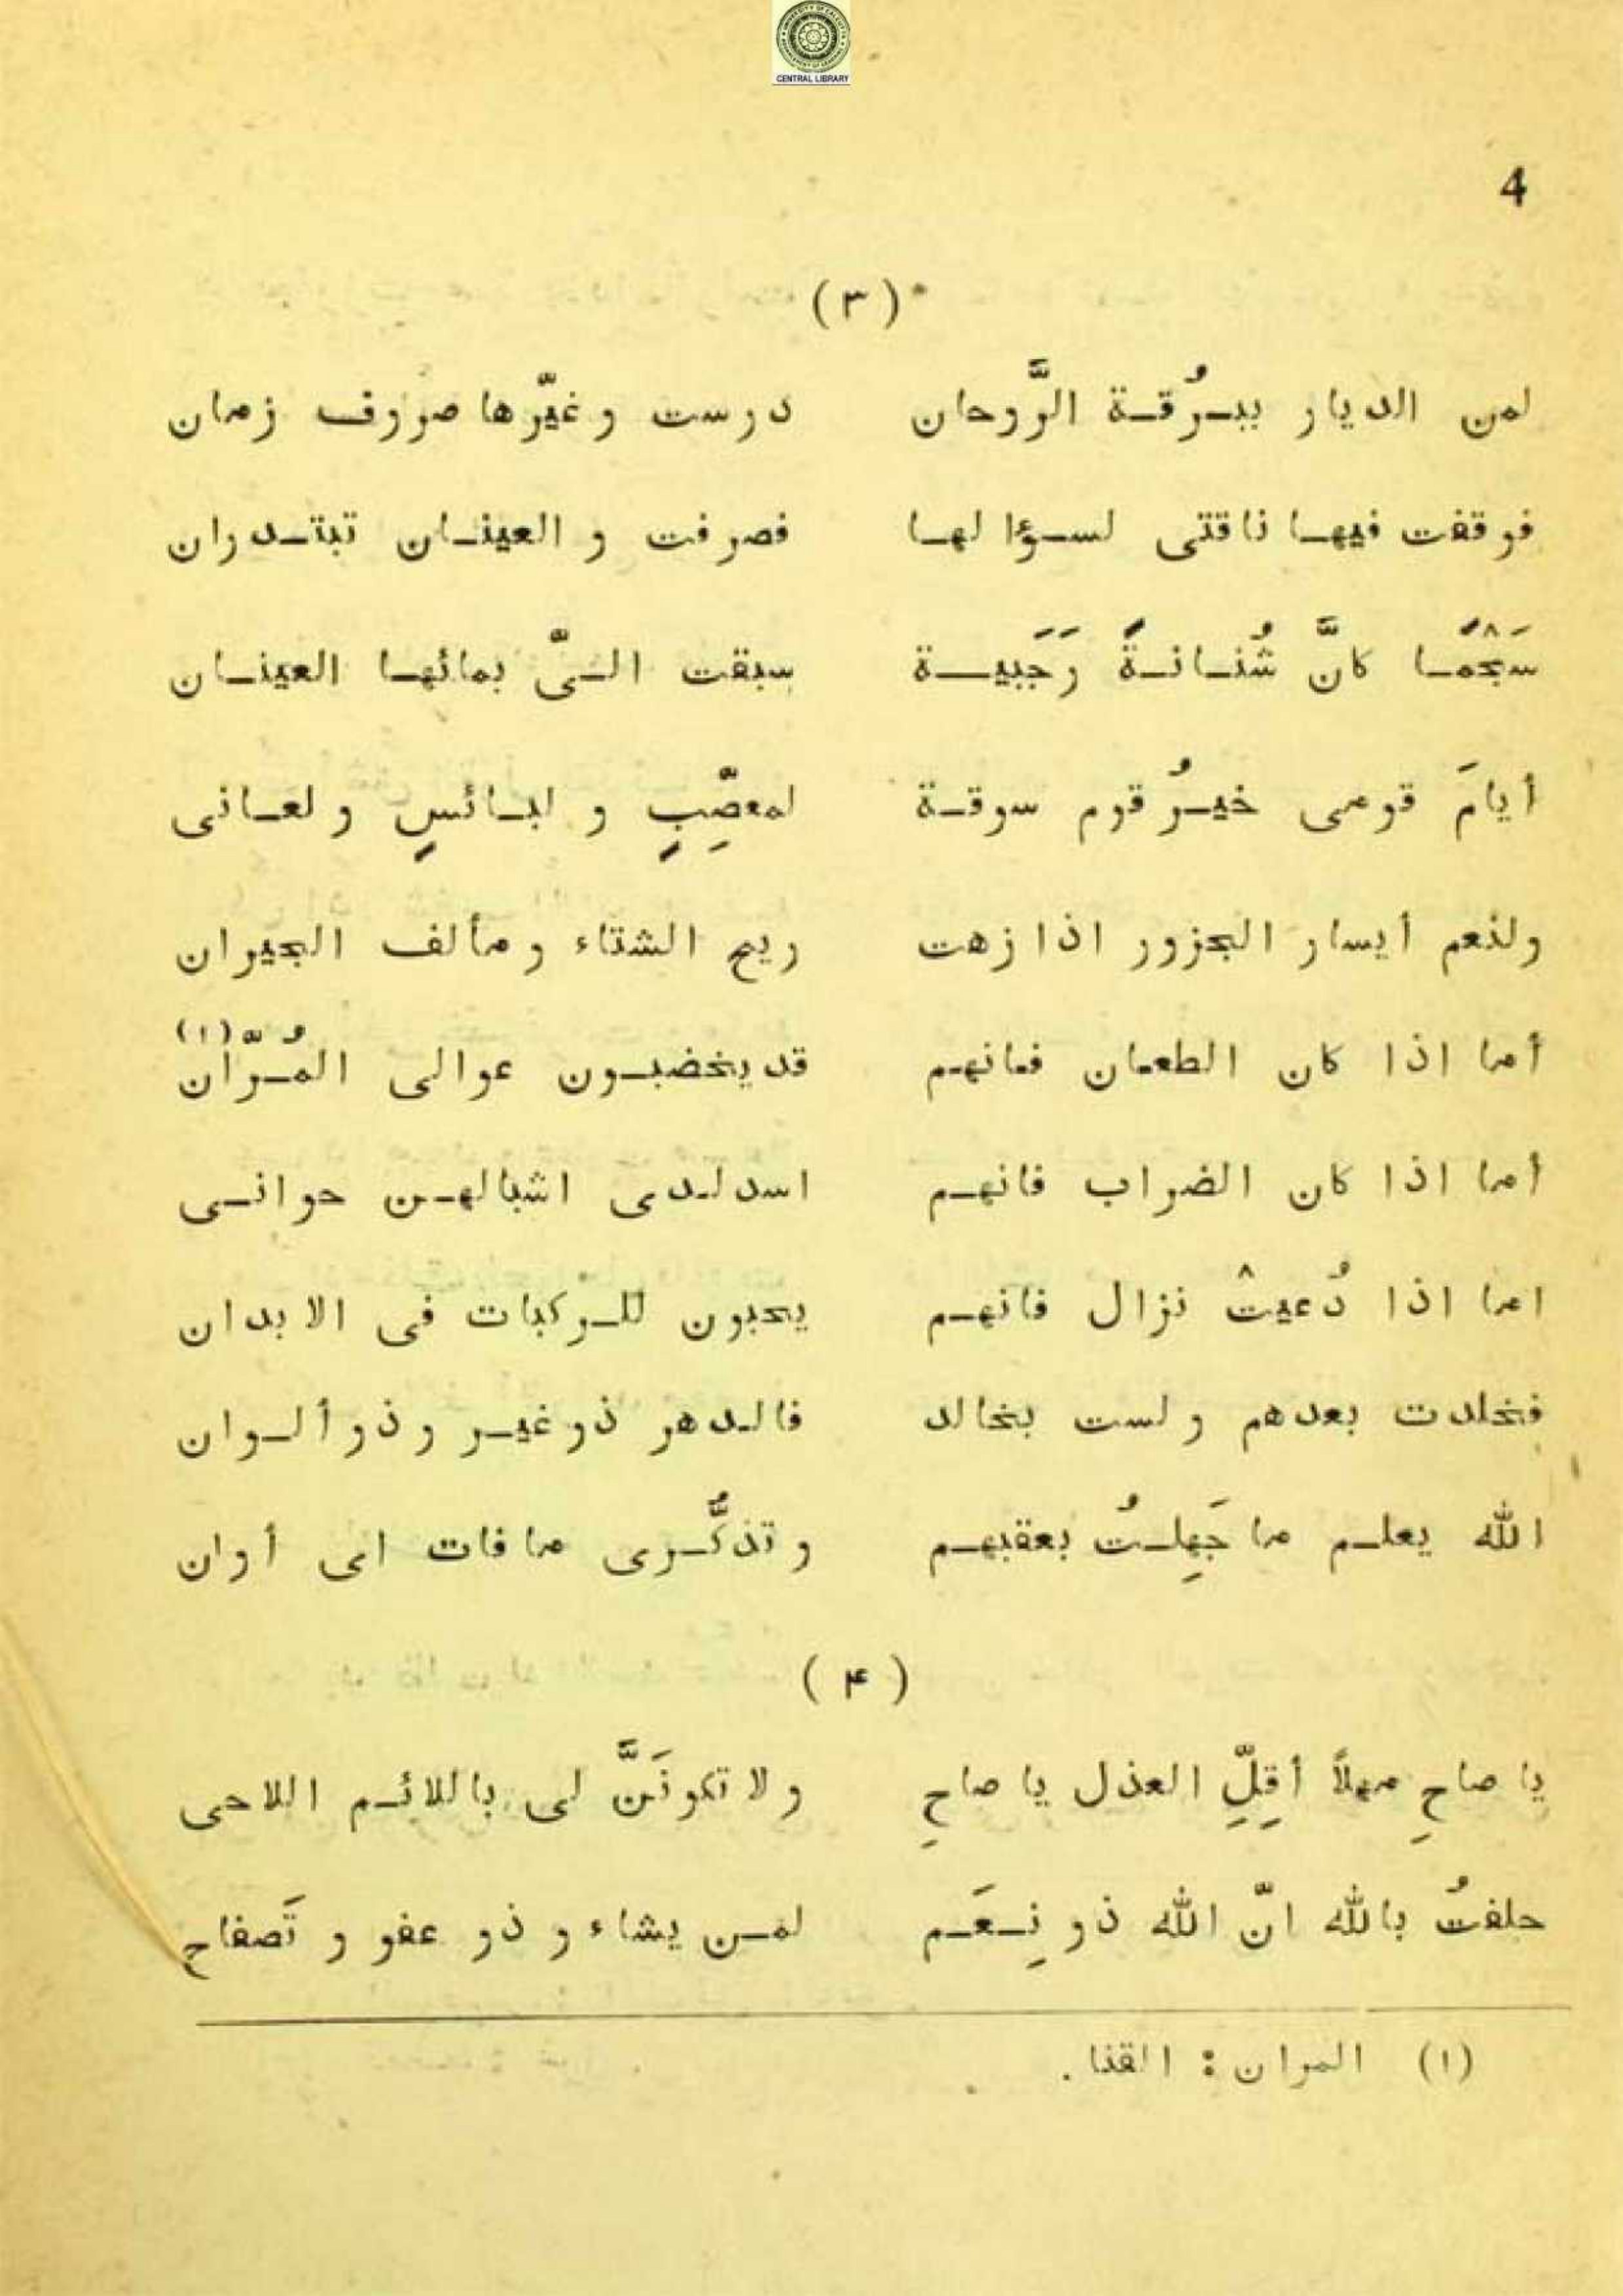 CENTRAL LIBRARY
4
(٣)
لمن الديار ببرُقة الرَّوحان درست و غيّرها صروف زمان
فوقفت فيها ناقتى لسؤالها فصرفت و العينان تبتدران
سَجْمًا كانَّ شُنانةً رَجَبية سبقت الىّ بمائها العينان
أيامَ قومى خيرُ قوم سوقة لمعصِّبٍ و لبائسٍ و لعانى
ولنعم أيسار الجزور اذا زهت ريح الشتاء و مألف الجيران
أما اذا كان الطعان فانهم قد يخضبون عوالى المُرّان (١)
أما اذا كان الضراب فانهم اسد لدى اشبالهن حوانى
اما اذا دُعيتْ نزال فانهم يحبون للركبات فى الابدان
فخلدت بعدهم ولست بخالد فالدهر ذو غير و ذو ألوان
الله يعلم ما جَهِلتُ بعقبهم و تذكُّرى ما فات اى أوان
(۴)
يا صاحِ مهلاً أقِلِّ العذل يا صاحِ و لا تكونَنَّ لى باللائم اللاحى
حلفتُ بالله انّ الله ذو نِعَم لمن يشاء و ذو عفو و تَصفاح
(١) المران : القنا .